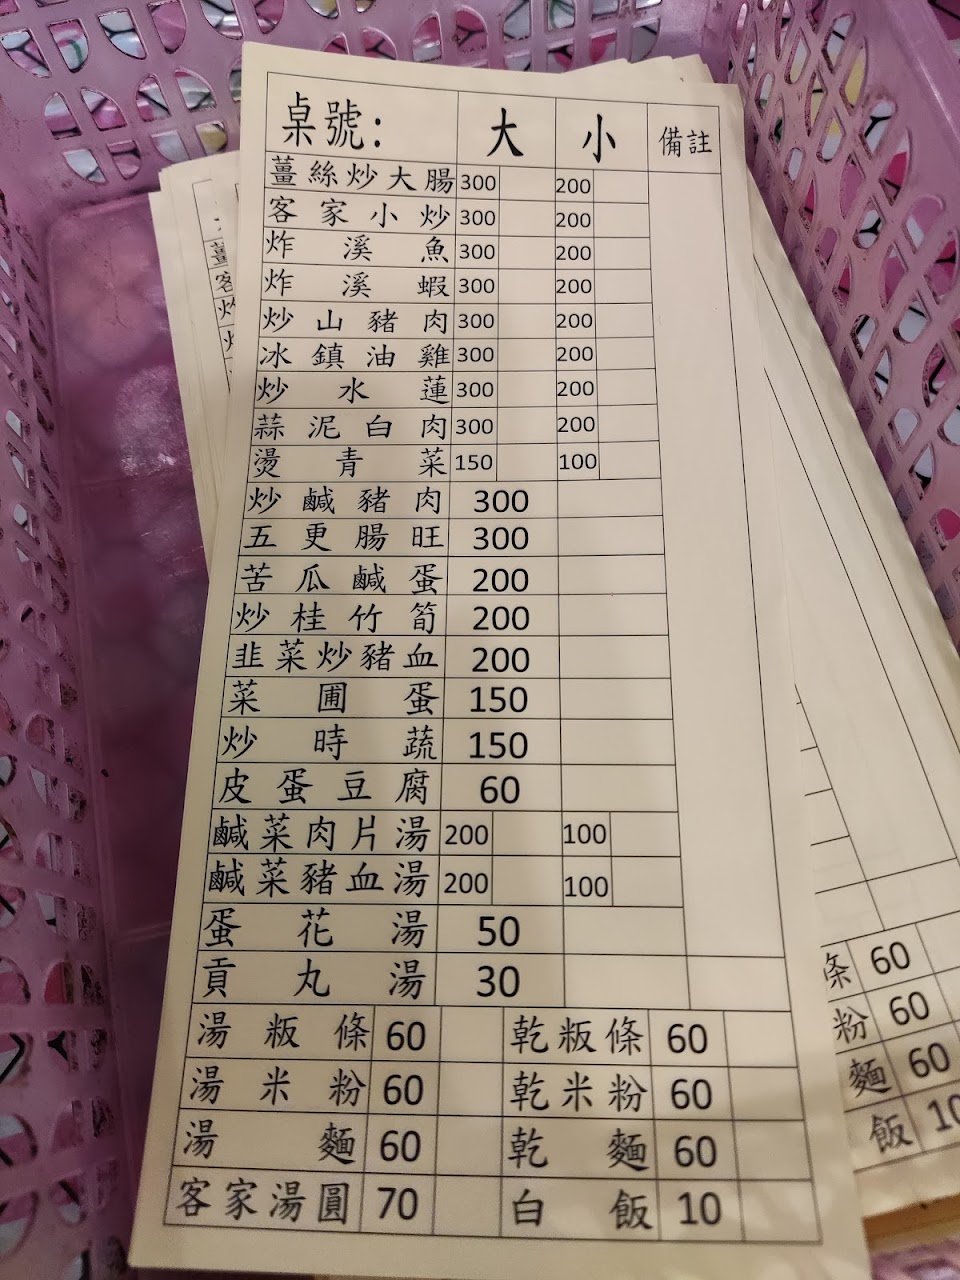 桌號: 大 小 備註
薑絲炒大腸 300 200
客家小炒 300 200
炸溪魚 300 200
炸溪蝦 300 200
炒山豬肉 300 200
冰鎮油雞 300 200
炒水蓮 300 200
蒜泥白肉 300 200
燙青菜 150 100
炒鹹豬肉 300
五更腸旺 300
苦瓜鹹蛋 200
炒桂竹筍 200
韭菜炒豬血 200
菜圃蛋 150
炒時蔬 150
皮蛋豆腐 60
鹹菜肉片湯 200 100
鹹菜豬血湯 200 100
蛋花湯 50
貢丸湯 30
湯粄條 60 乾粄條 60
湯米粉 60 乾米粉 60
湯麵 60 乾麵 60
客家湯圓 70 白飯 10
條 60
粉 60
麵 60
飯 10
薑
客
炸